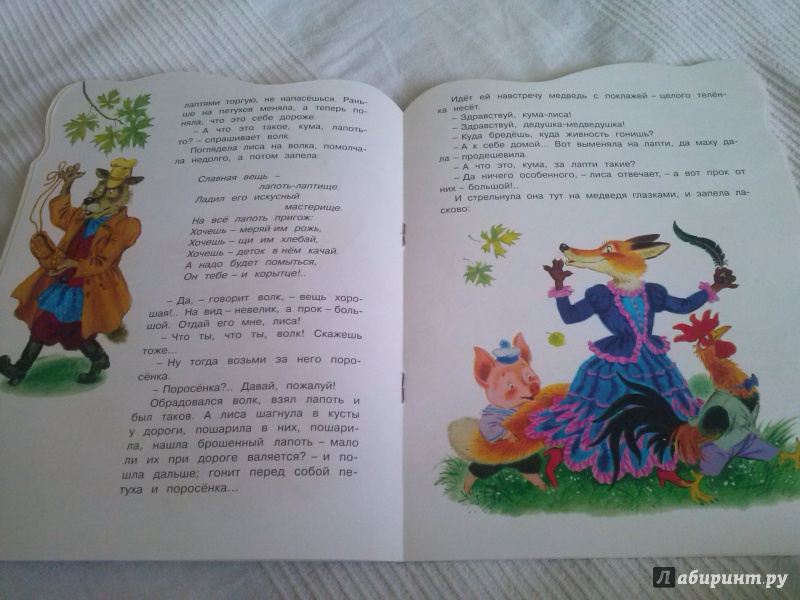 лаптями торгую, не напасёшься. Рань-
ше на петухов меняла, а теперь по-
няла, что это себе дороже.
– А что это такое, кума, лапоть-
то? – спрашивает волк.
Поглядела лиса на волка, помолча-
ла недолго, а потом запела:
Славная вещь –
лапоть-лаптище.
Ладил его искусный
мастерище.
На всё лапоть пригож:
Хочешь – меряй им рожь,
Хочешь – щи им хлебай,
Хочешь – деток в нём качай.
А надо будет помыться,
Он тебе – и корытце!..
– Да, – говорит волк, – вещь хоро-
шая!.. На вид – невелик, а прок – боль-
шой. Отдай его мне, лиса!
– Что ты, что ты, волк! Скажешь
тоже...
– Ну тогда возьми за него поро-
сёнка.
– Поросёнка?.. Давай, пожалуй!
Обрадовался волк, взял лапоть и
был таков. А лиса шагнула в кусты
у дороги, пошарила в них, пошари-
ла, нашла брошенный лапоть – мало
ли их при дороге валяется? – и по-
шла дальше; гонит перед собой пе-
туха и поросёнка...
Идёт ей навстречу медведь с поклажей – целого телён-
ка несёт.
– Здравствуй, кума-лиса!
– Здравствуй, дедушка-медведушка!
– Куда бредёшь, куда живность гонишь?
– А к себе домой... Вот выменяла на лапти, да маху да-
ла – продешевила.
– А что это, кума, за лапти такие?
– Да ничего особенного, – лиса отвечает, – а вот прок от
них – большой!..
И стрельнула она тут на медведя глазками, и запела ла-
сково:
Лабиринт.ру